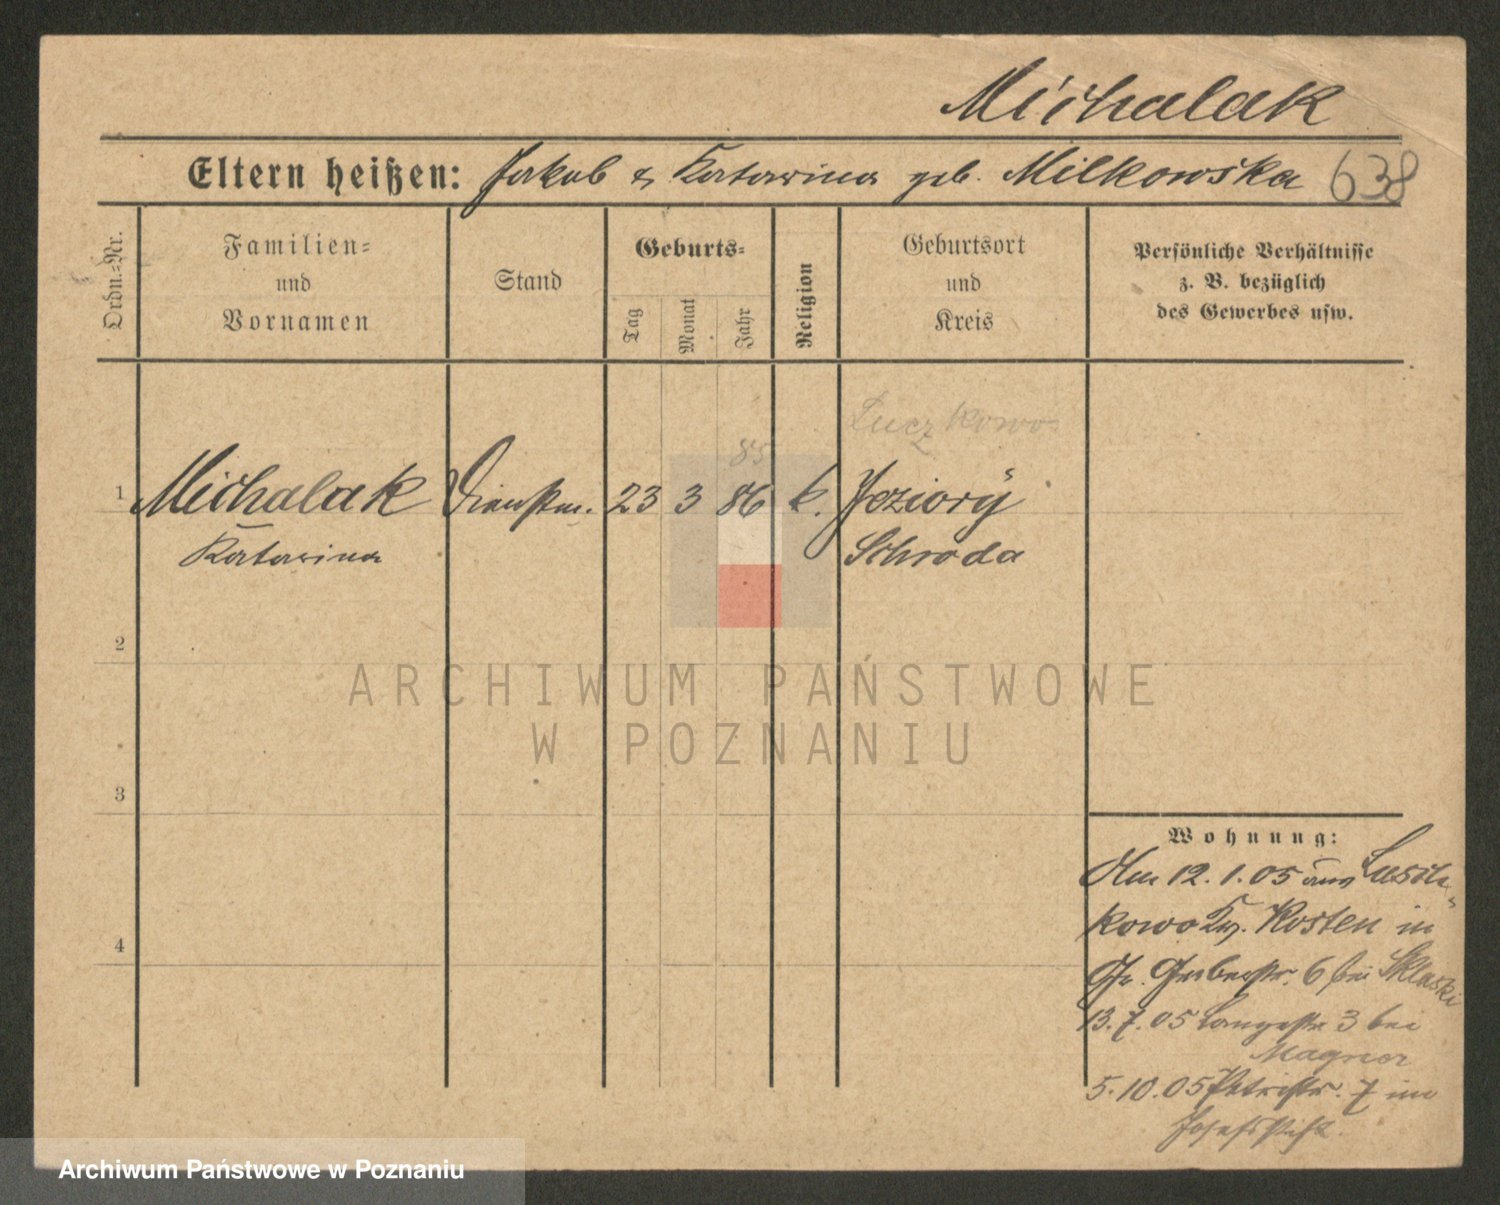 Michalak
Eltern heißen: Jakob & Katarina geb. Milkowska 638
Ordn.=Nr.
Familien=
und
Vornamen
Stand
Geburts=
Tag
Monat
Jahr
Religion
Geburtsort
und
Kreis
Persönliche Verhältnisse
z. B. bezüglich
des Gewerbes usw.
Luczkowo
85
1 Michalak Dienstm. 23 3 86 k. Jeziory
Katarina Schroda
2
ARCHIWUM PAŃSTWOWE
W POZNANIU
3
Wohnung:
Am 12.1.05 aus Lusch=
kowo Kr. Kosten in
4
Gr. Gerberstr. 6 bei Sklaski
13.7.05 Langestr. 3 bei
Magner
5.10.05 Petristr. 7 im
Josefstift.
Archiwum Państwowe w Poznaniu